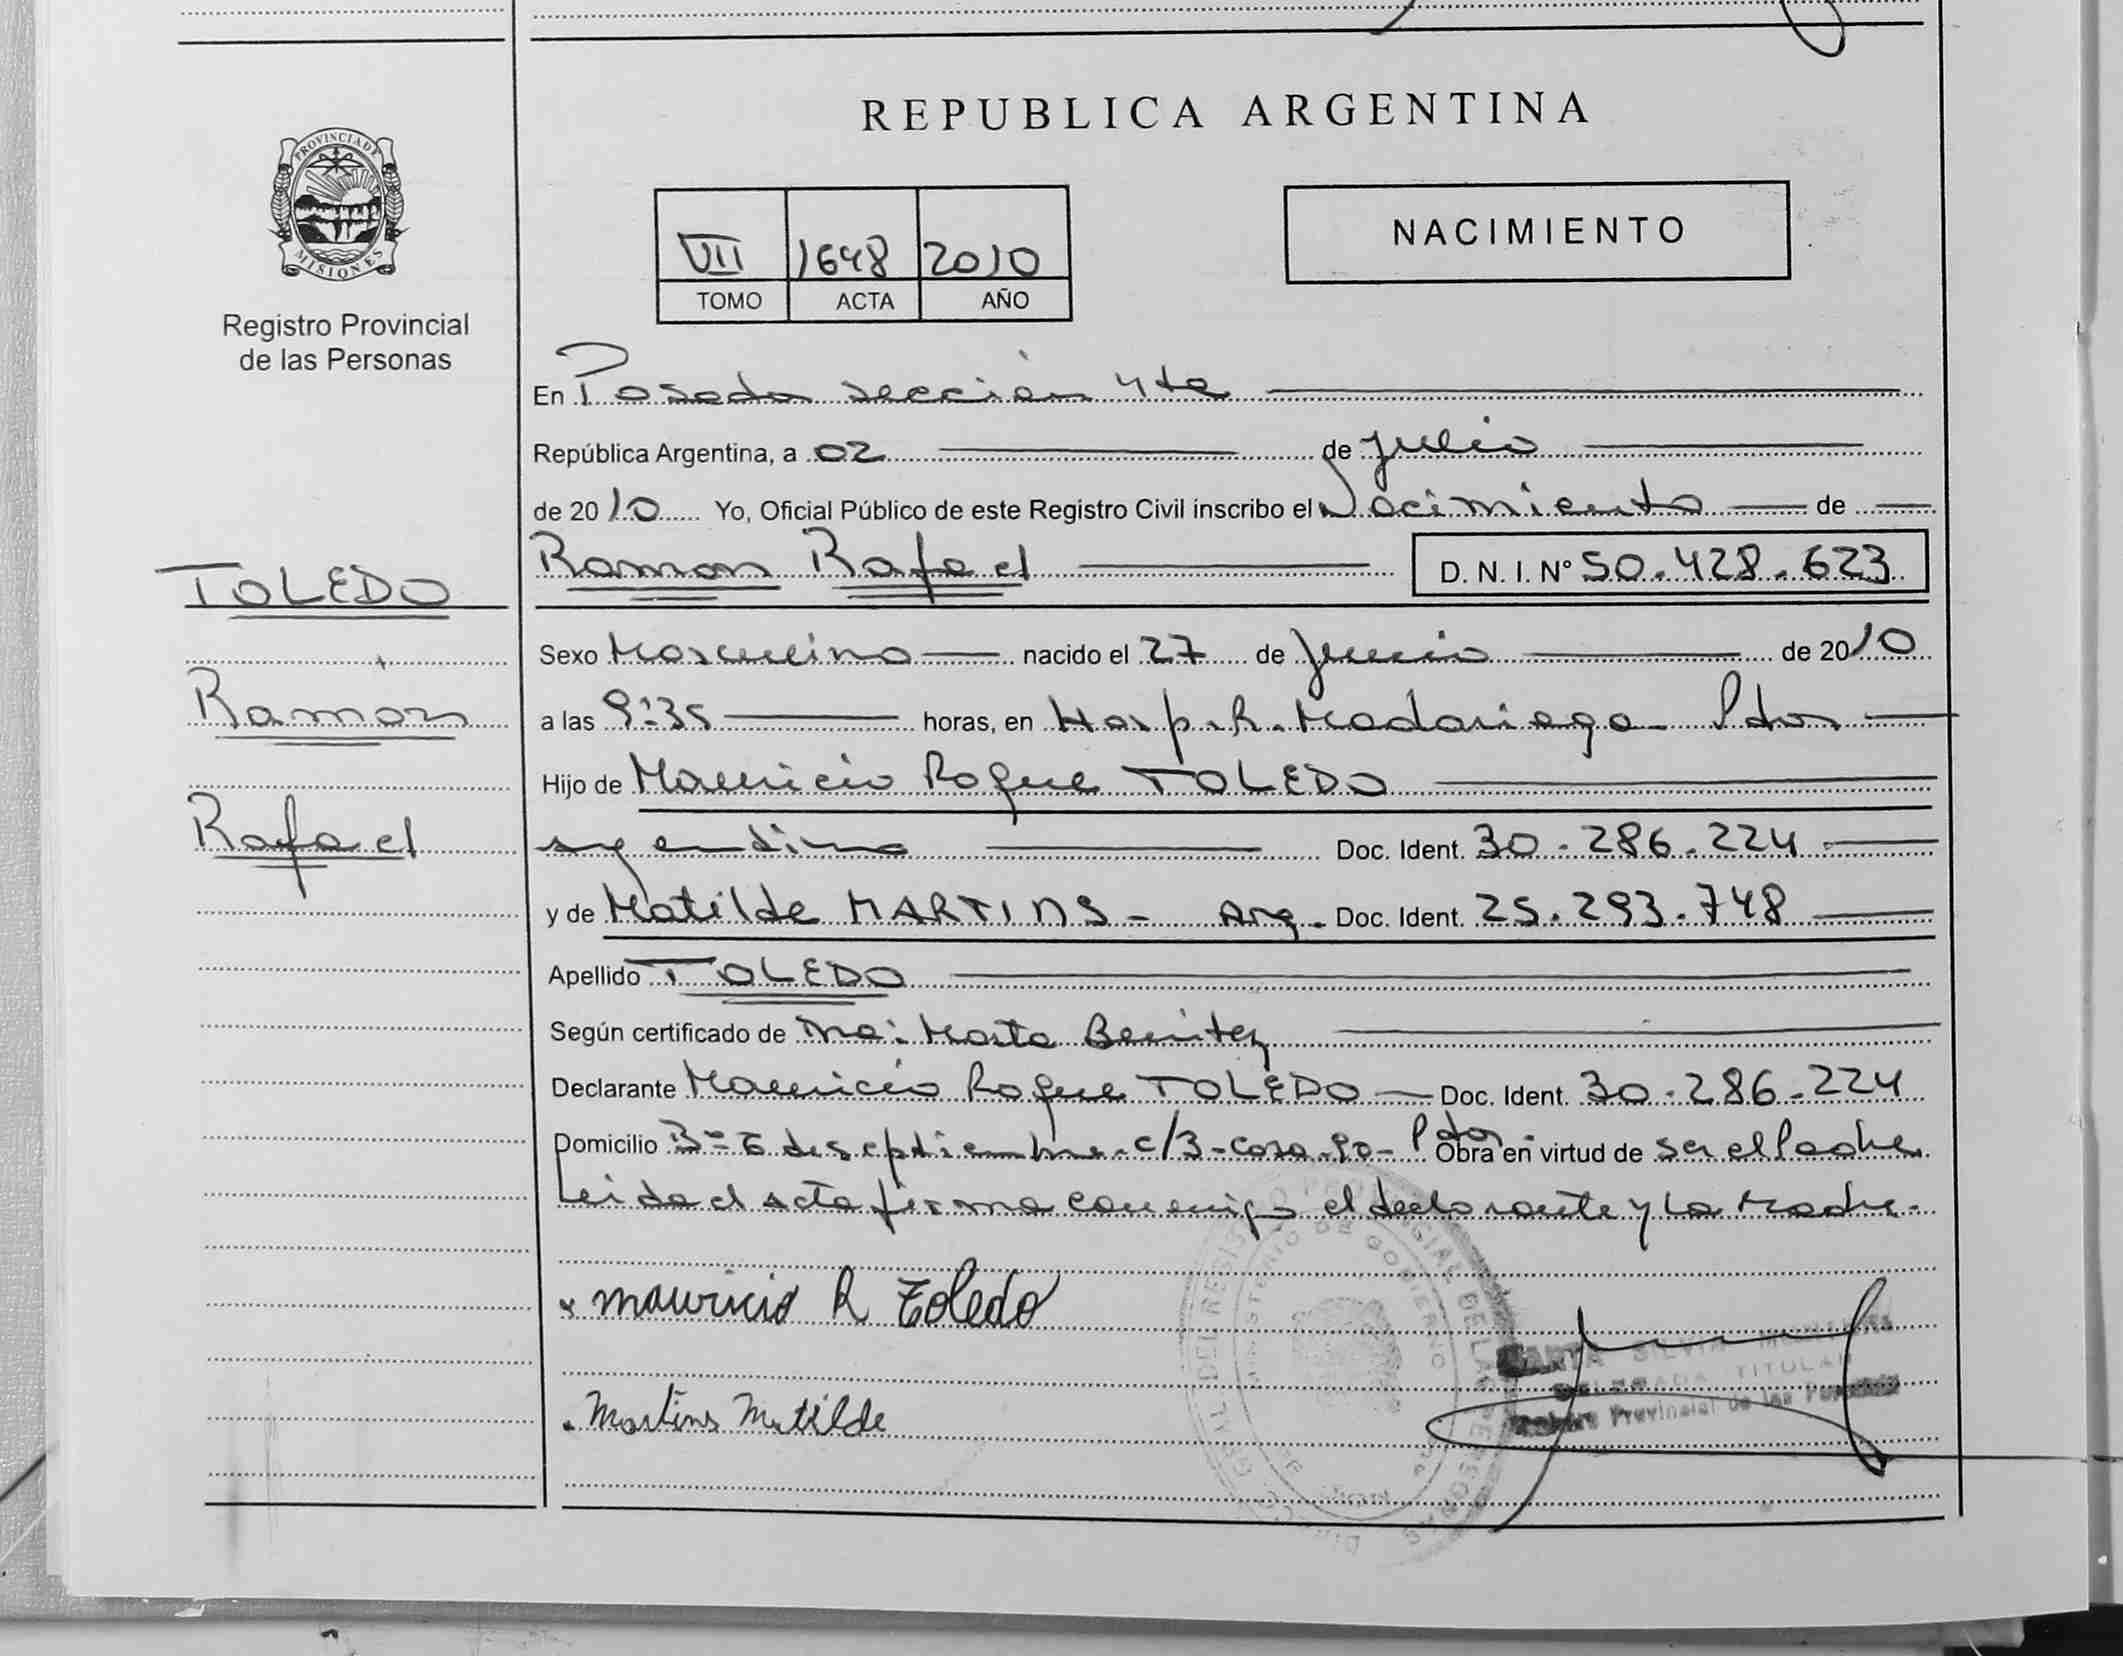 REPUBLICA ARGENTINA
PROVINCIA DE
MISIONES
Registro Provincial
de las Personas
VII 1648 2010
TOMO ACTA AÑO
NACIMIENTO
En Posadas sección 4ta
República Argentina, a 02 de Julio
de 2010 Yo, Oficial Público de este Registro Civil inscribo el Nacimiento de
Ramon Rafael D. N. I. Nº 50.428.623
TOLEDO
Ramon
Rafael
Sexo Masculino nacido el 27 de Junio de 2010
a las 9:35 horas, en Hosp. R. Madariaga Pdas
Hijo de Mauricio Roque TOLEDO
argentino Doc. Ident. 30.286.224
y de Matilde MARTINS - Arg. Doc. Ident. 25.293.748
Apellido TOLEDO
Según certificado de Marta Benitez
Declarante Mauricio Roque TOLEDO Doc. Ident. 30.286.224
Domicilio Bº 6 de septiembre - c/3 - casa 90 - Pdas Obra en virtud de ser el Padre
Leida el acta firma conmigo el declarante y la Madre.
x mauricio R Toledo
Martins Matilde
SILVIA
TITULAR
Provincial de las Personas
MINISTERIO DE GOBIERNO